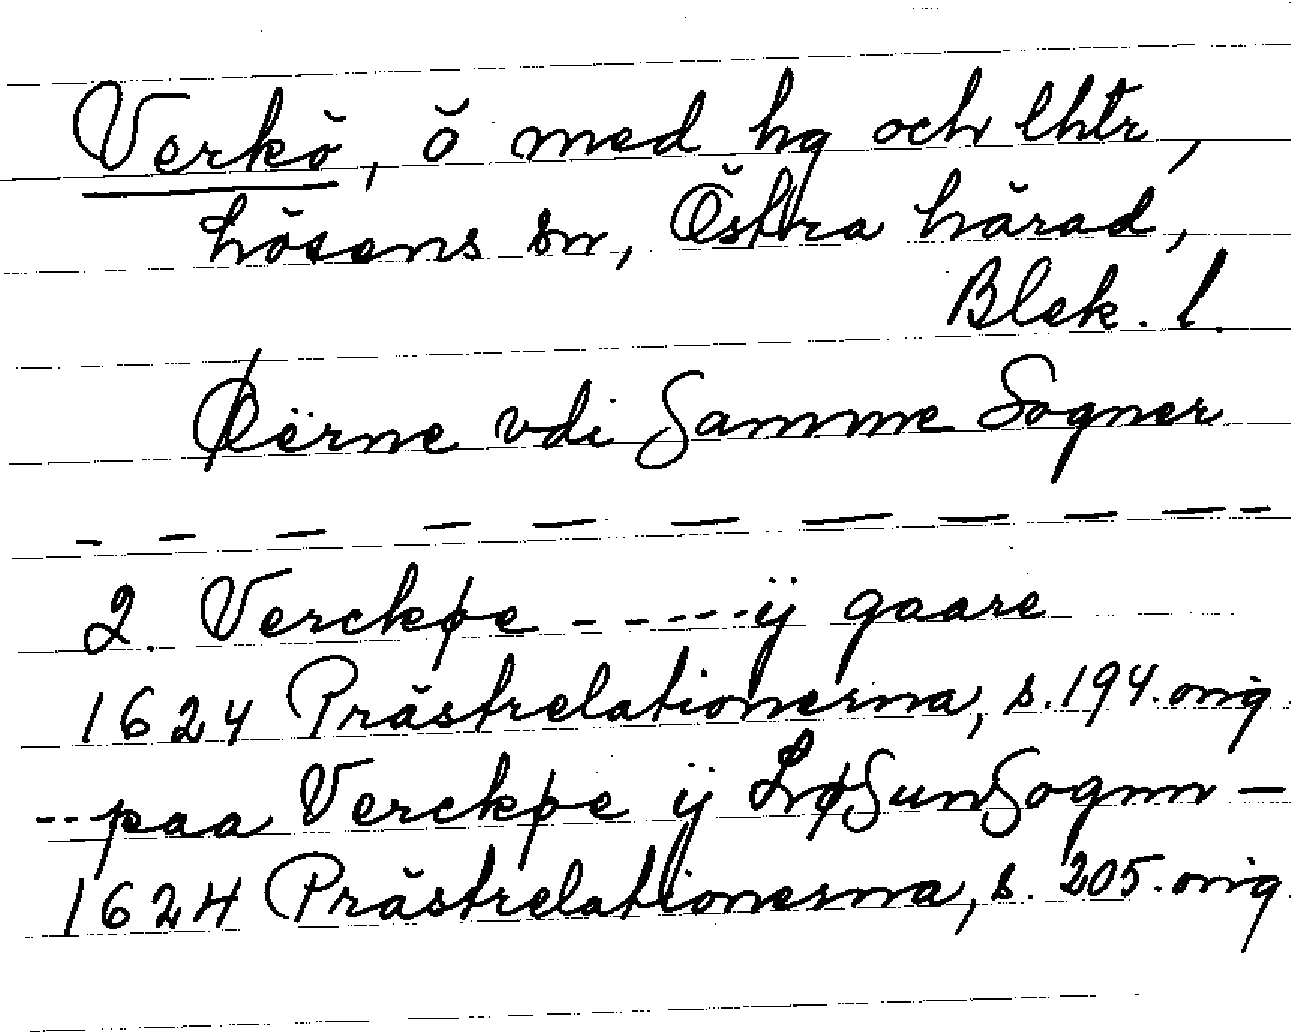 Verkö, ö med hg och lhtr,
Lösens sn, Östra härad,
Blek. l.
Øerne vdi Samme Sogner
- - - - - - - - - - -
2. Verckøe - - - - - ÿ gaare
1624 Prästrelationerna, s. 194. orig
- - - paa Verckøe ÿ LøSunSognn —
1624 Prästrelationerna, s. 205. orig.